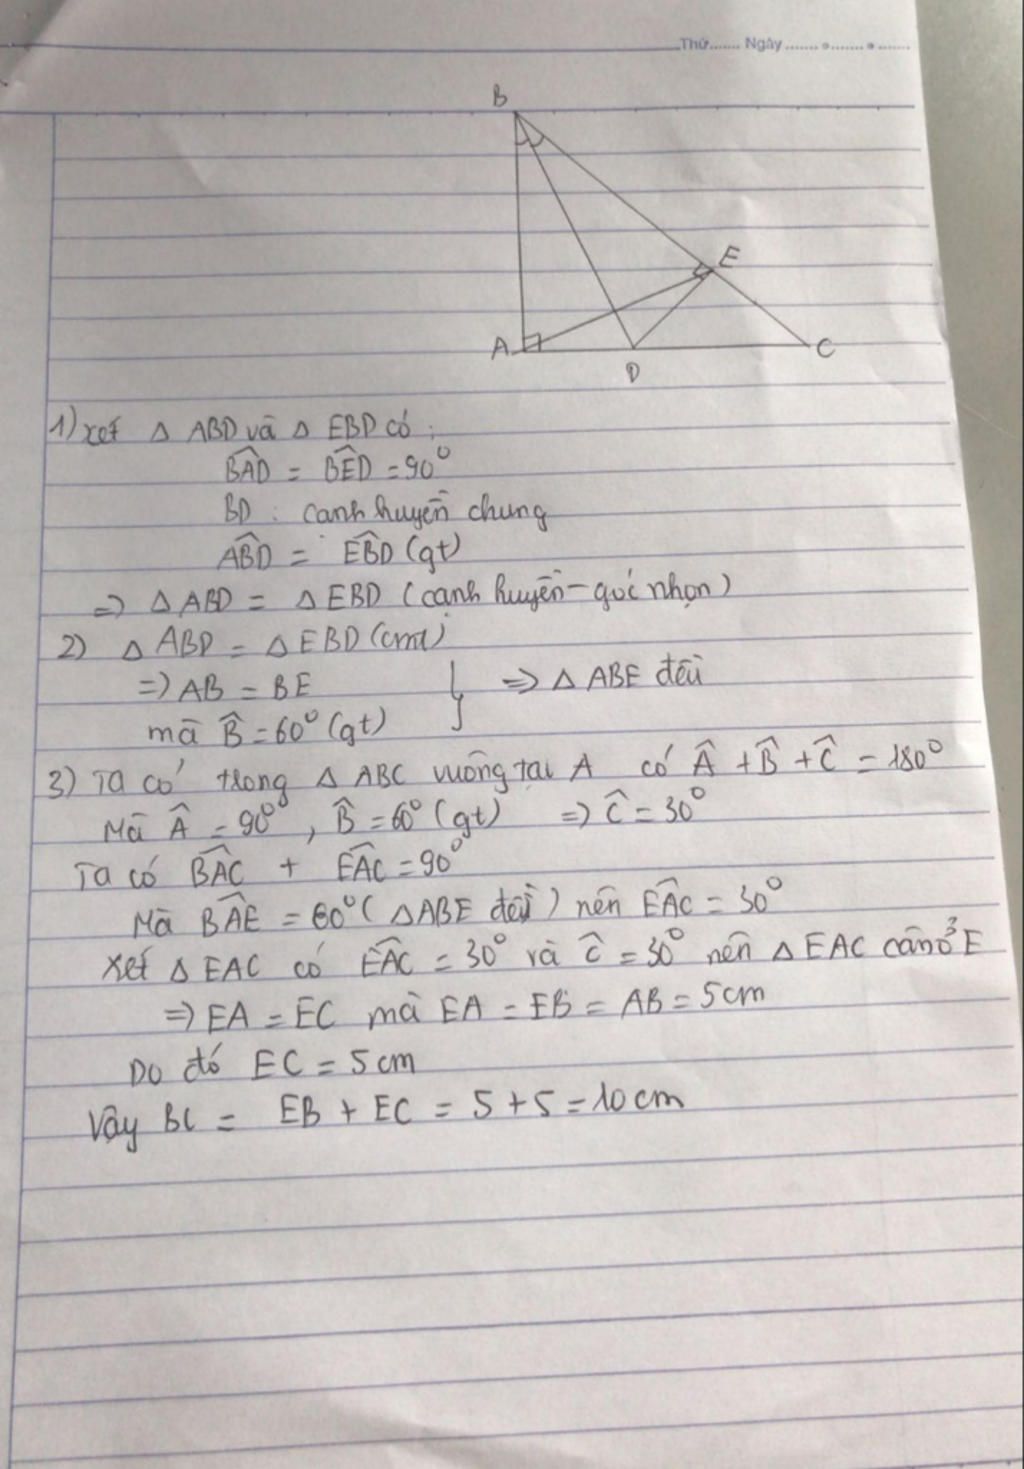 Thứ....... Ngày ....................
B
E
A
C
D
1) xét Δ ABD và Δ EBD có :
BÂD = BÊD = 90°
BD : cạnh huyền chung
ABD̂ = EBD̂ (gt)
=> Δ ABD = Δ EBD (cạnh huyền - góc nhọn)
2) Δ ABD = Δ EBD (cmt)
=> AB = BE
=> Δ ABE đều
mà B̂ = 60° (gt)
3) Ta có trong Δ ABC vuông tại A có Â + B̂ + Ĉ = 180°
Mà Â = 90°, B̂ = 60° (gt) => Ĉ = 30°
Ta có BÂC + EÂC = 90°
Mà BÂE = 60° (ΔABE đều) nên EÂC = 30°
Xét Δ EAC có EÂC = 30° và Ĉ = 30° nên Δ EAC cân ở E
=> EA = EC mà EA = EB = AB = 5cm
Do đó EC = 5cm
Vậy BC = EB + EC = 5 + 5 = 10cm